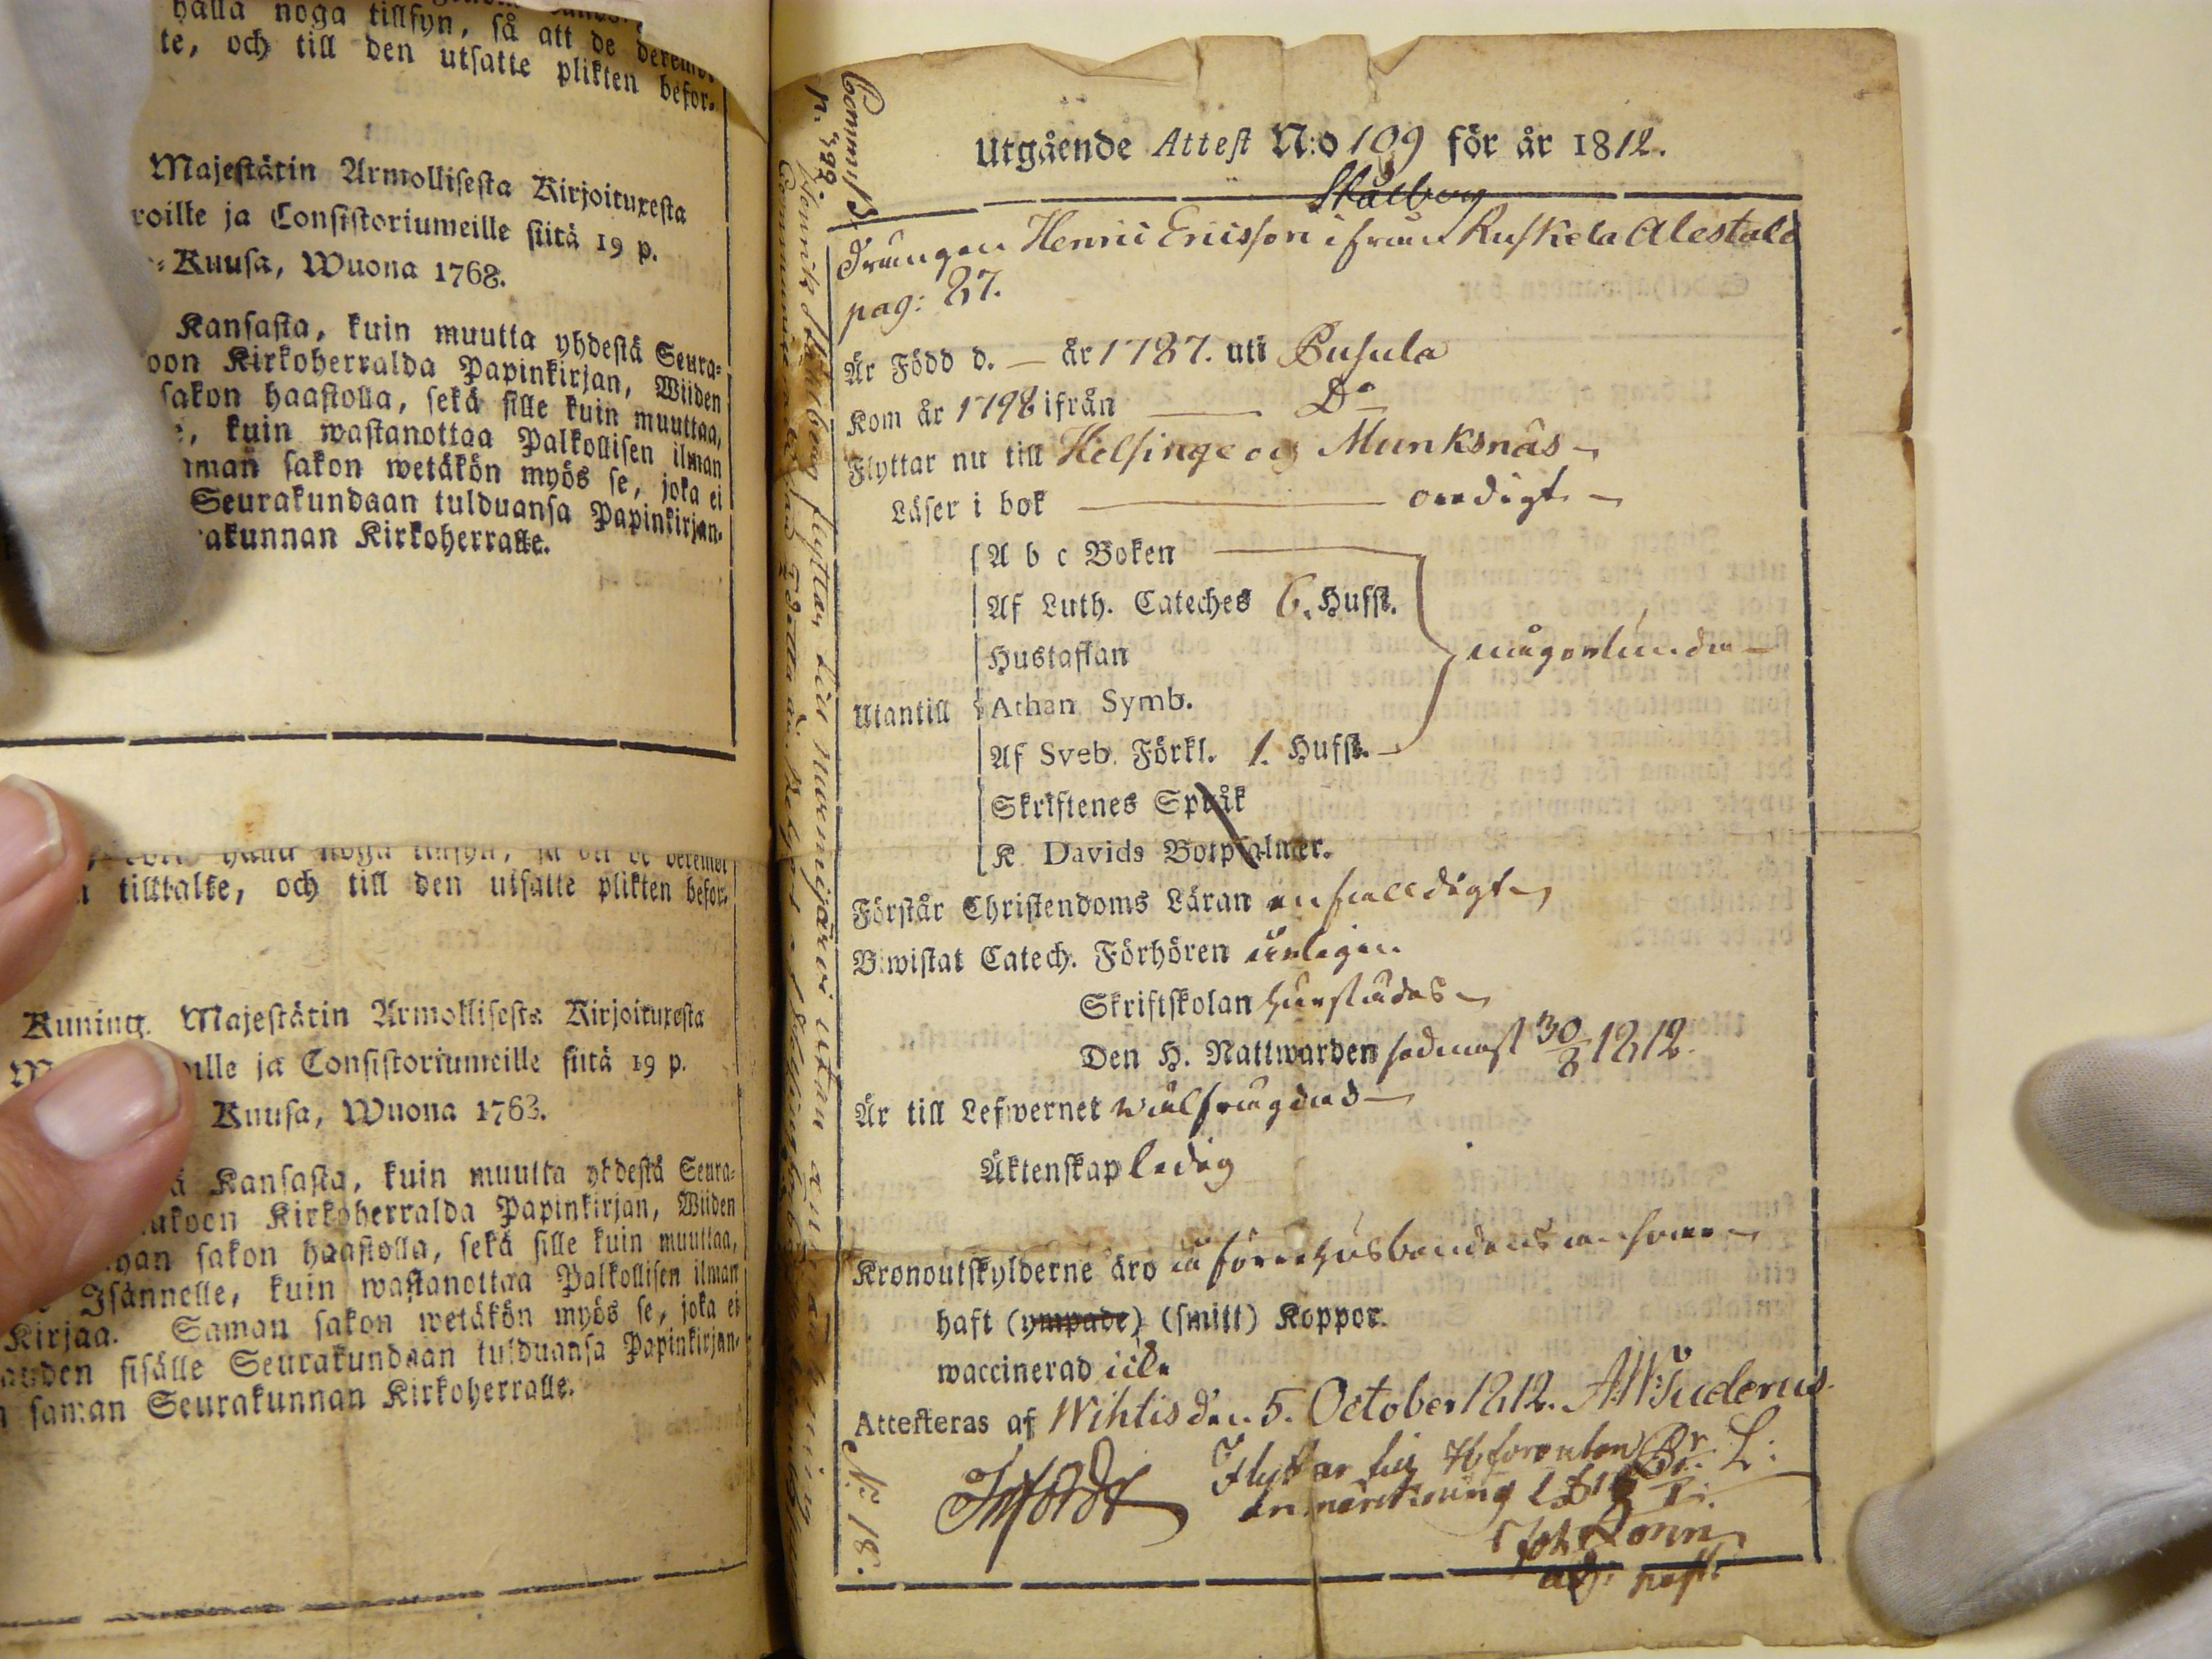 hålla noga tillsyn, så att de deremot
te, och till den utsatte plikten befor-
Majestätin Armollisesta Kirjoituxesta
roille ja Consistoriumeille siitä 19 p.
Kuusa, Wuona 1768.
Kansasta, kuin muutta yhdestä Seura-
oon Kirkoherralda Papinkirjan, Wiiden
sakon haastolla, sekä sille kuin muuttaa,
kuin wastanottaa Palkollisen ilman
man sakon wetäkön myös se, joka ei
Seurakundaan tulduansa Papinkirjan-
akunnan Kirkoherralle.
hålla noga tillsyn, så att de deremot
tilltalte, och till den utsatte plikten befor-
Kuning. Majestätin Armollisesta Kirjoituxesta
ille ja Consistoriumeille siitä 19 p.
Kuusa, Wuona 1763.
Kansasta, kuin muutta yhdestä Seura-
akoon Kirkoherralda Papinkirjan, Wiiden
an sakon haastolla, sekä sille kuin muuttaa,
Isännelle, kuin wastanottaa Palkollisen ilman
Kirjaa. Saman sakon wetäkön myös se, joka ei
auden sisälle Seurakundaan tulduansa Papinkirjan-
saman Seurakunnan Kirkoherralle.
p. 392.
Henrik Stålberg flyttar till Nurmijärvi utan
Utgående Attest N:o 109 för år 1812.
Stålberg
Drängen Henric Ericsson ifrån Ruskela Alestalo
pag: 87.
Är Född d. — år 1787. uti Pusula
Kom år 1798 ifrån — Do
Flyttar nu till Helsinge och Munksnäs
Läser i bok — ordigt
A b c Boken
Af Luth. Cateches 6. Hufst.
Hustaflan
någorlunda
Utantill
Athan Symb.
Af Sveb. Förkl. 1. Hufst.
Skriftenes Språk
K Davids Botpsalmer.
Förstår Christendoms Läran enfalldigt
Biwistat Catech. Förhören årligen
Skriftskolan
Den H. Nattwarden sednast 30/8 1812.
Är till Lefwernet wälfrägdad
Äktenskap ledig
Kronoutskylderne äro å förre husbondens ansvar
haft (ympade) (smitt) Koppor.
waccinerad icke
Attesteras af Wihtis den 5. October 1812. A:W: Tuderus.
Flyttar
anmärkning
N: 18.